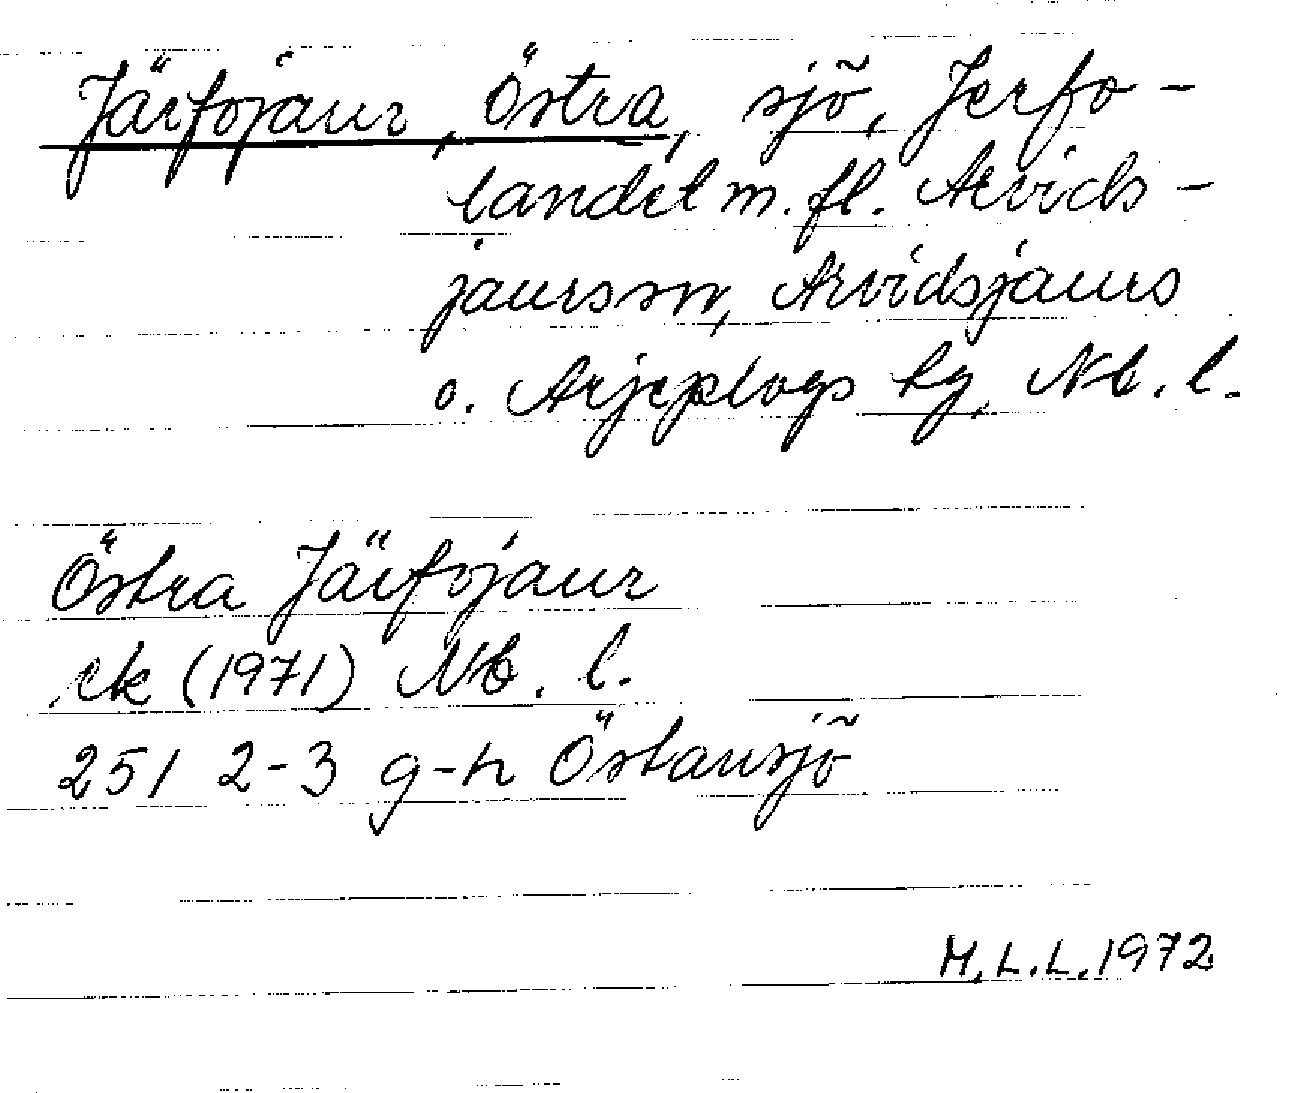 Järfojaur, Östra, sjö, Jerfo-
landet m.fl. Arvids-
jaurs sn, Arvidsjaurs
o. Arjeplogs tg, Nb. l.
Östra Järfojaur
ek (1971) Nb. l.
251 2-3 g-h Östansjö
M.L.L. 1972